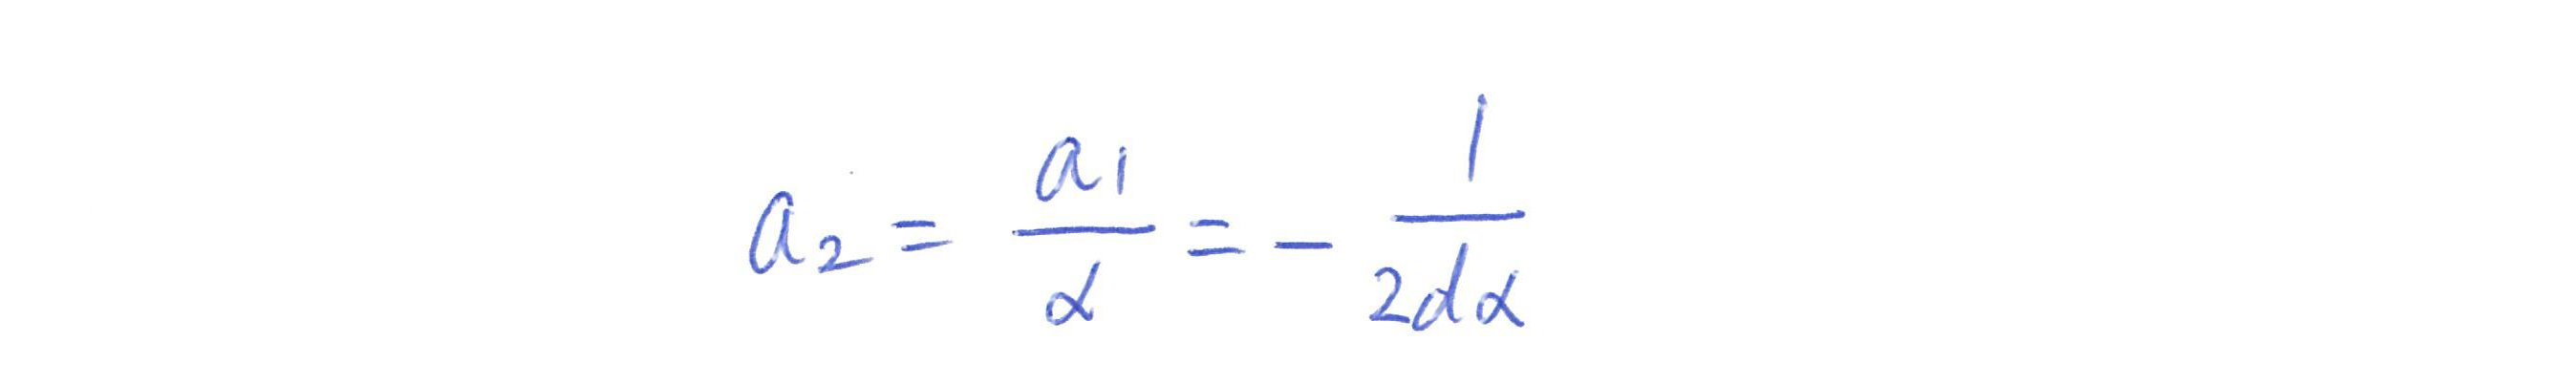 a₂ = a₁/α = − 1/(2dα)